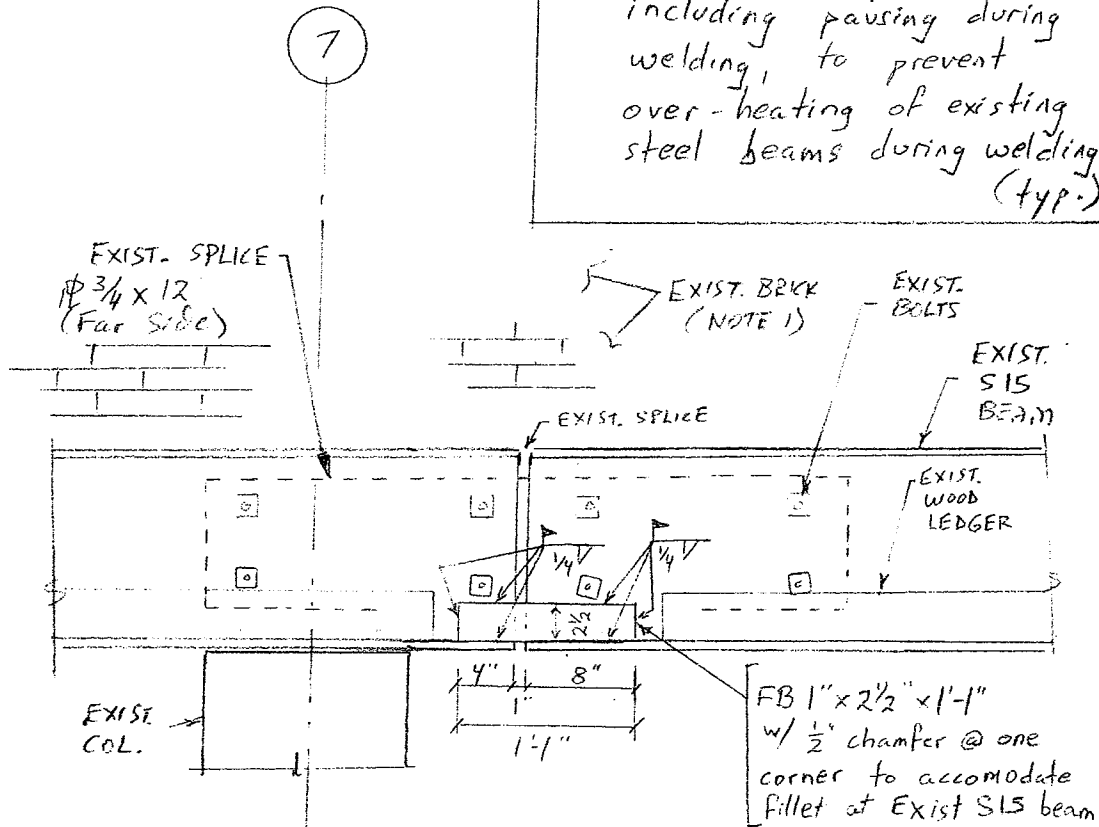 including pausing during
welding, to prevent
over-heating of existing
steel beams during welding
(typ.)
7
EXIST. SPLICE
℄ 3/4 x 12
(Far Side)
EXIST. BRICK
(NOTE 1)
EXIST.
BOLTS
EXIST.
S15
BEAM
EXIST. SPLICE
EXIST.
WOOD
LEDGER
1/4
1/4
2 1/2
4"
8"
1'-1"
EXIST.
COL.
FB 1" x 2 1/2" x 1'-1"
w/ 1/2" chamfer @ one
corner to accomodate
fillet at Exist S15 beam